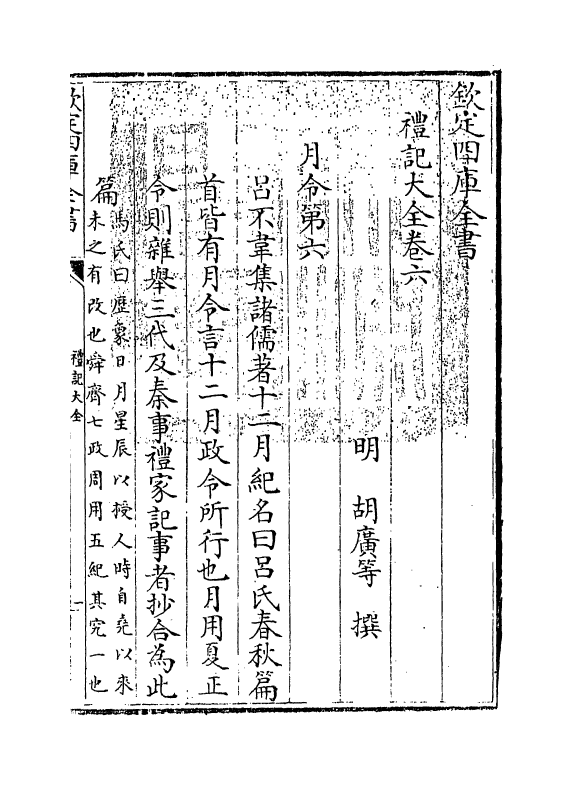 欽定四庫全書
禮記大全卷六
明　胡廣等　撰
月令第六
呂不韋集諸儒著十二月紀名曰呂氏春秋篇
首皆有月令言十二月政令所行也月用夏正
令則雜舉三代及秦事禮家記事者抄合為此
篇
馬氏曰歷象日月星辰以授人時自堯以來
未之有改也舜齊七政周用五紀其究一也
欽定四庫全書
禮記大全
一